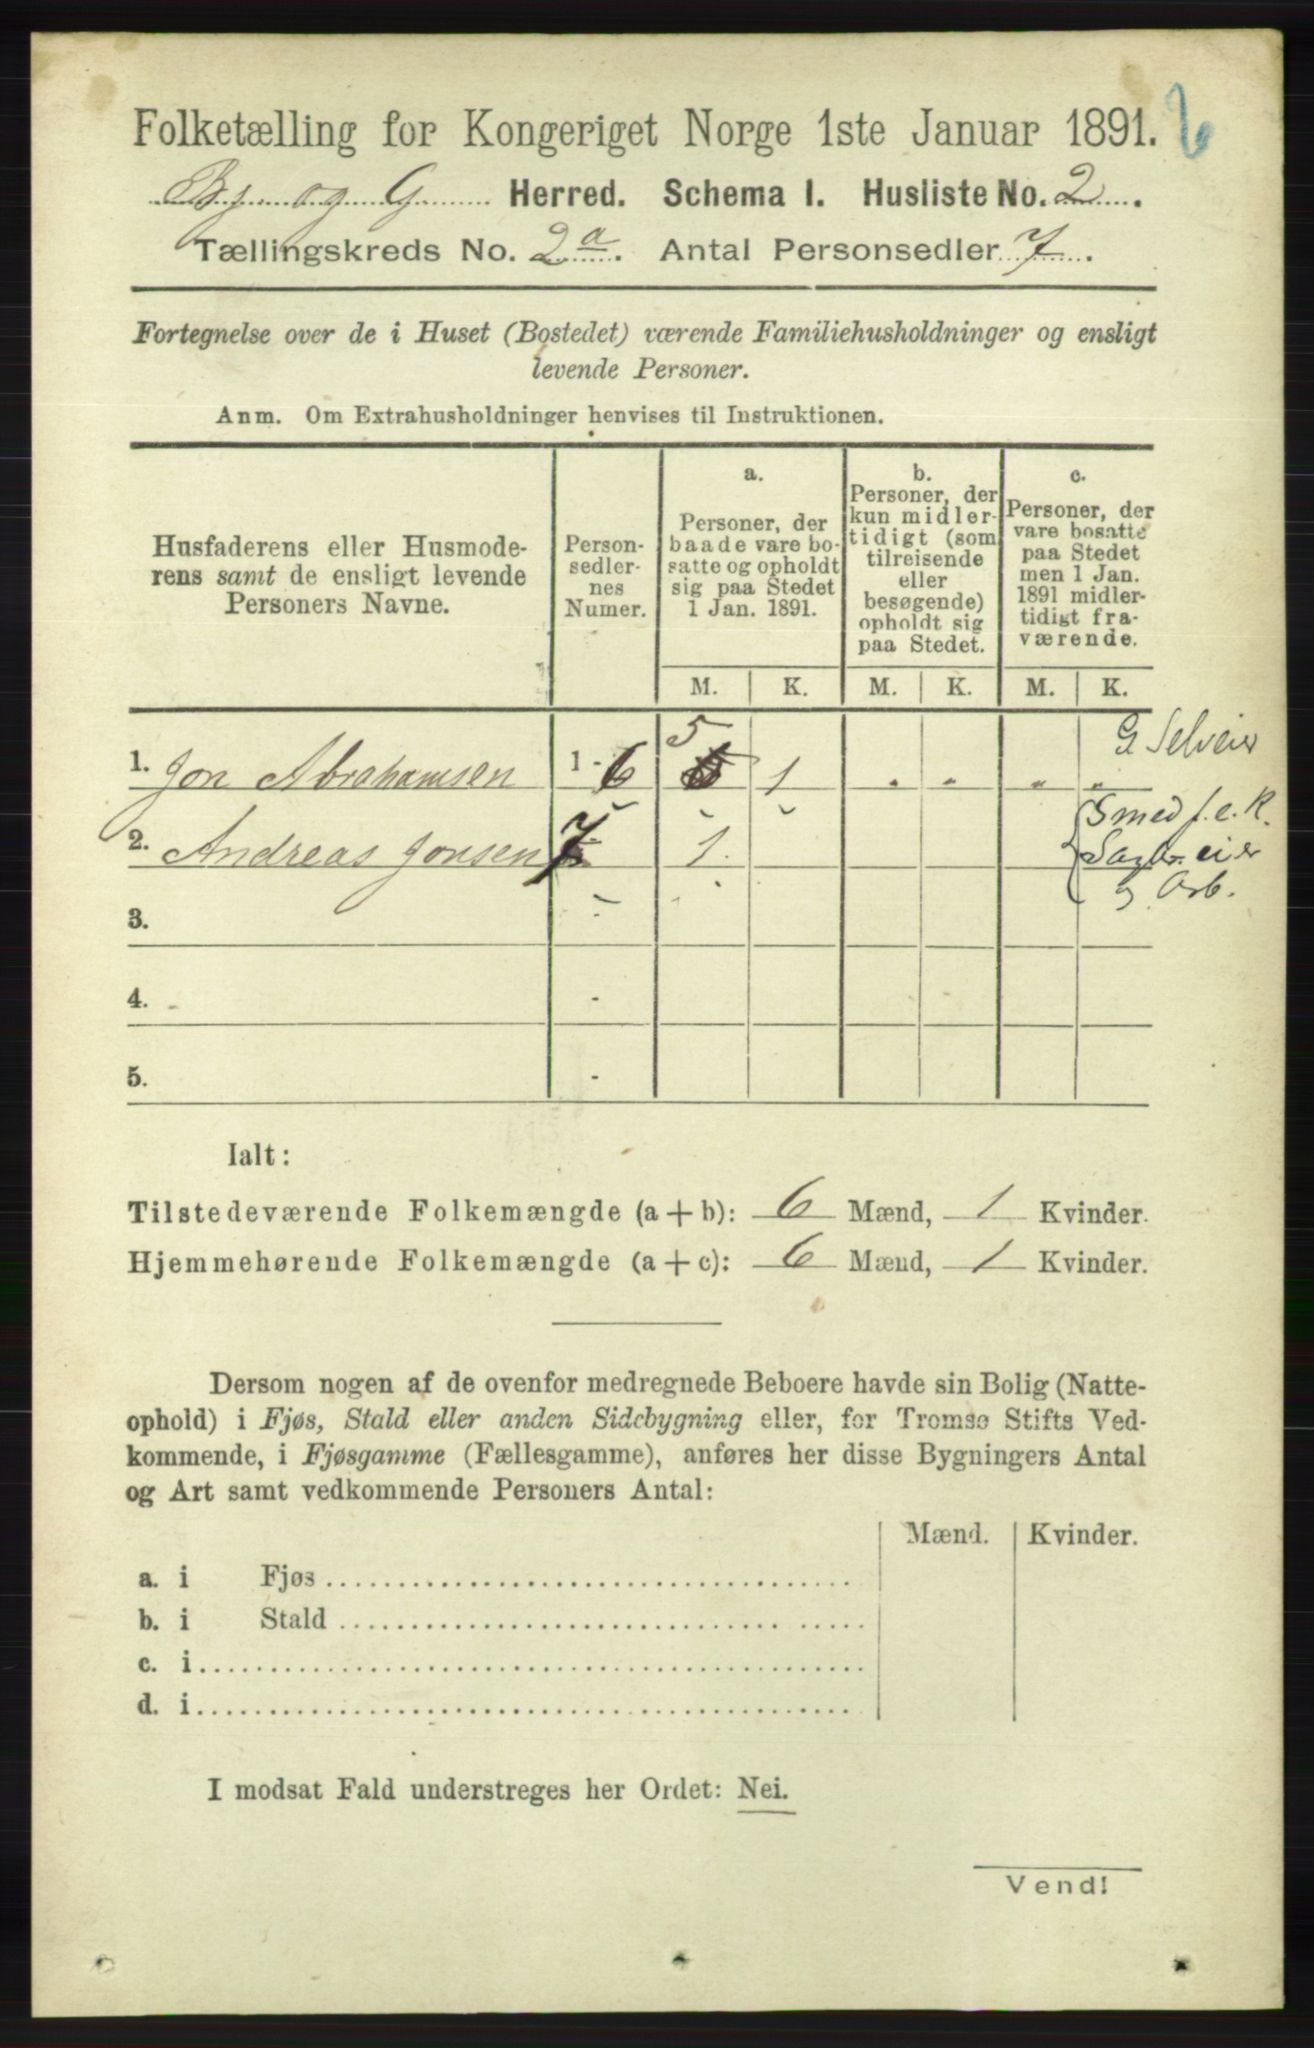 6
Folketælling for Kongeriget Norge 1ste Januar 1891.
By og G Herred. Schema I. Husliste No. 2.
Tællingskreds No. 2a. Antal Personsedler 7.
Fortegnelse over de i Huset (Bostedet) værende Familiehusholdninger og ensligt
levende Personer.
Anm. Om Extrahusholdninger henvises til Instruktionen.
Husfaderens eller Husmode-
rens samt de ensligt levende
Personers Navne.
Person-
sedler-
nes
Numer.
a.
Personer, der
baade vare bo-
satte og opholdt
sig paa Stedet
1 Jan. 1891.
b.
Personer, der
kun midler-
tidigt (som
tilreisende
eller
besøgende)
opholdt sig
paa Stedet.
c.
Personer, der
vare bosatte
paa Stedet
men 1 Jan.
1891 midler-
tidigt fra-
værende.
M. K. M. K. M. K.
G Selveier
1. Jon Abrahamsen 1-6 5 1 " " " "
2. Andreas Jonsen 7 1.
{Smed f. e. R.
Sagbr. eier
og Arb.
3. -
4. -
5. -
Ialt:
Tilstedeværende Folkemængde (a + b): 6 Mænd, 1 Kvinder.
Hjemmehørende Folkemængde (a + c): 6 Mænd, 1 Kvinder.
Dersom nogen af de ovenfor medregnede Beboere havde sin Bolig (Natte-
ophold) i Fjøs, Stald eller anden Sidebygning eller, for Tromsø Stifts Ved-
kommende, i Fjøsgamme (Fællesgamme), anføres her disse Bygningers Antal
og Art samt vedkommende Personers Antal:
Mænd. Kvinder.
a. i Fjøs
b. i Stald
c. i
d. i
I modsat Fald understreges her Ordet: Nei.
Vend!